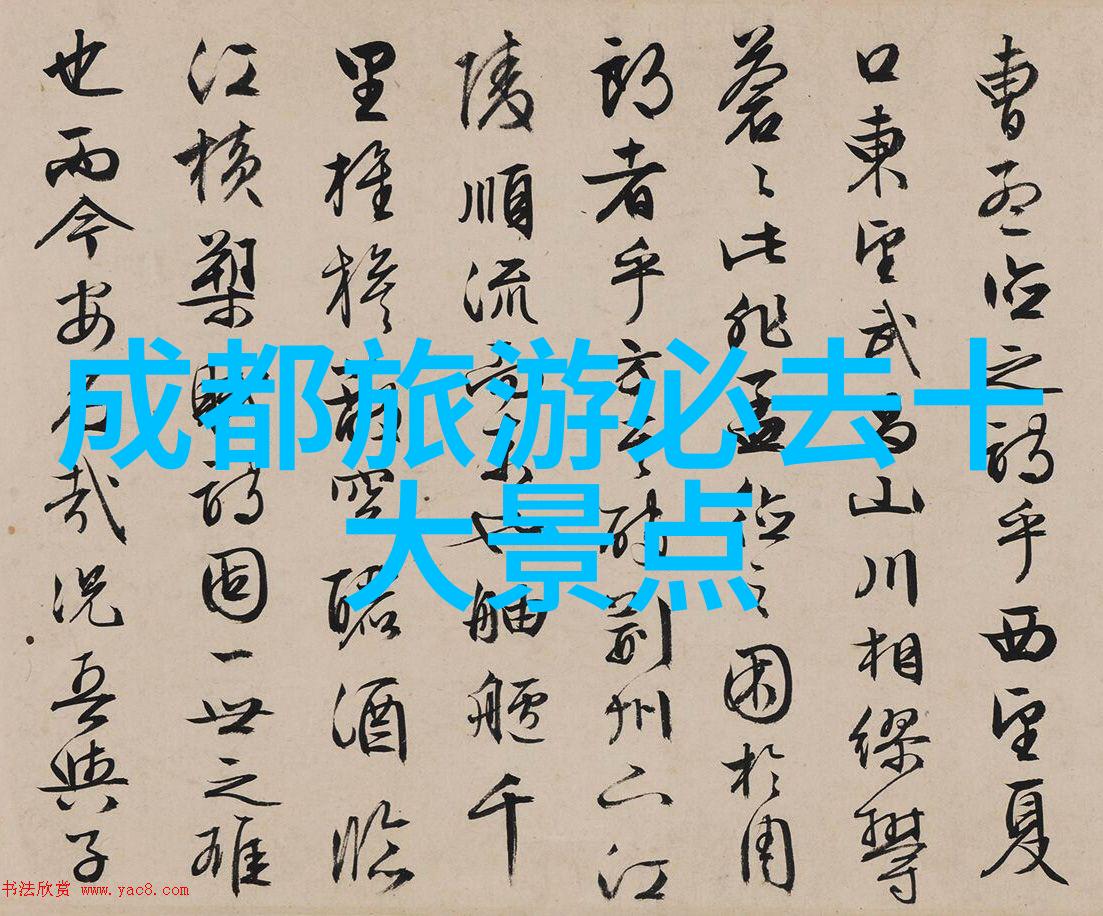 曹孟德之詩乎西望夏
口東望武昌山川相繆欝
蒼〻此非孟德之困於周
郎者乎方其破荊州下江
陵順流而東也舳艫千
里旌旗蔽空釃酒臨
江橫槊賦詩固一世之雄
也而今安在哉況吾與子
成都旅游必去十
大景点
书法欣赏 www.yac8.com